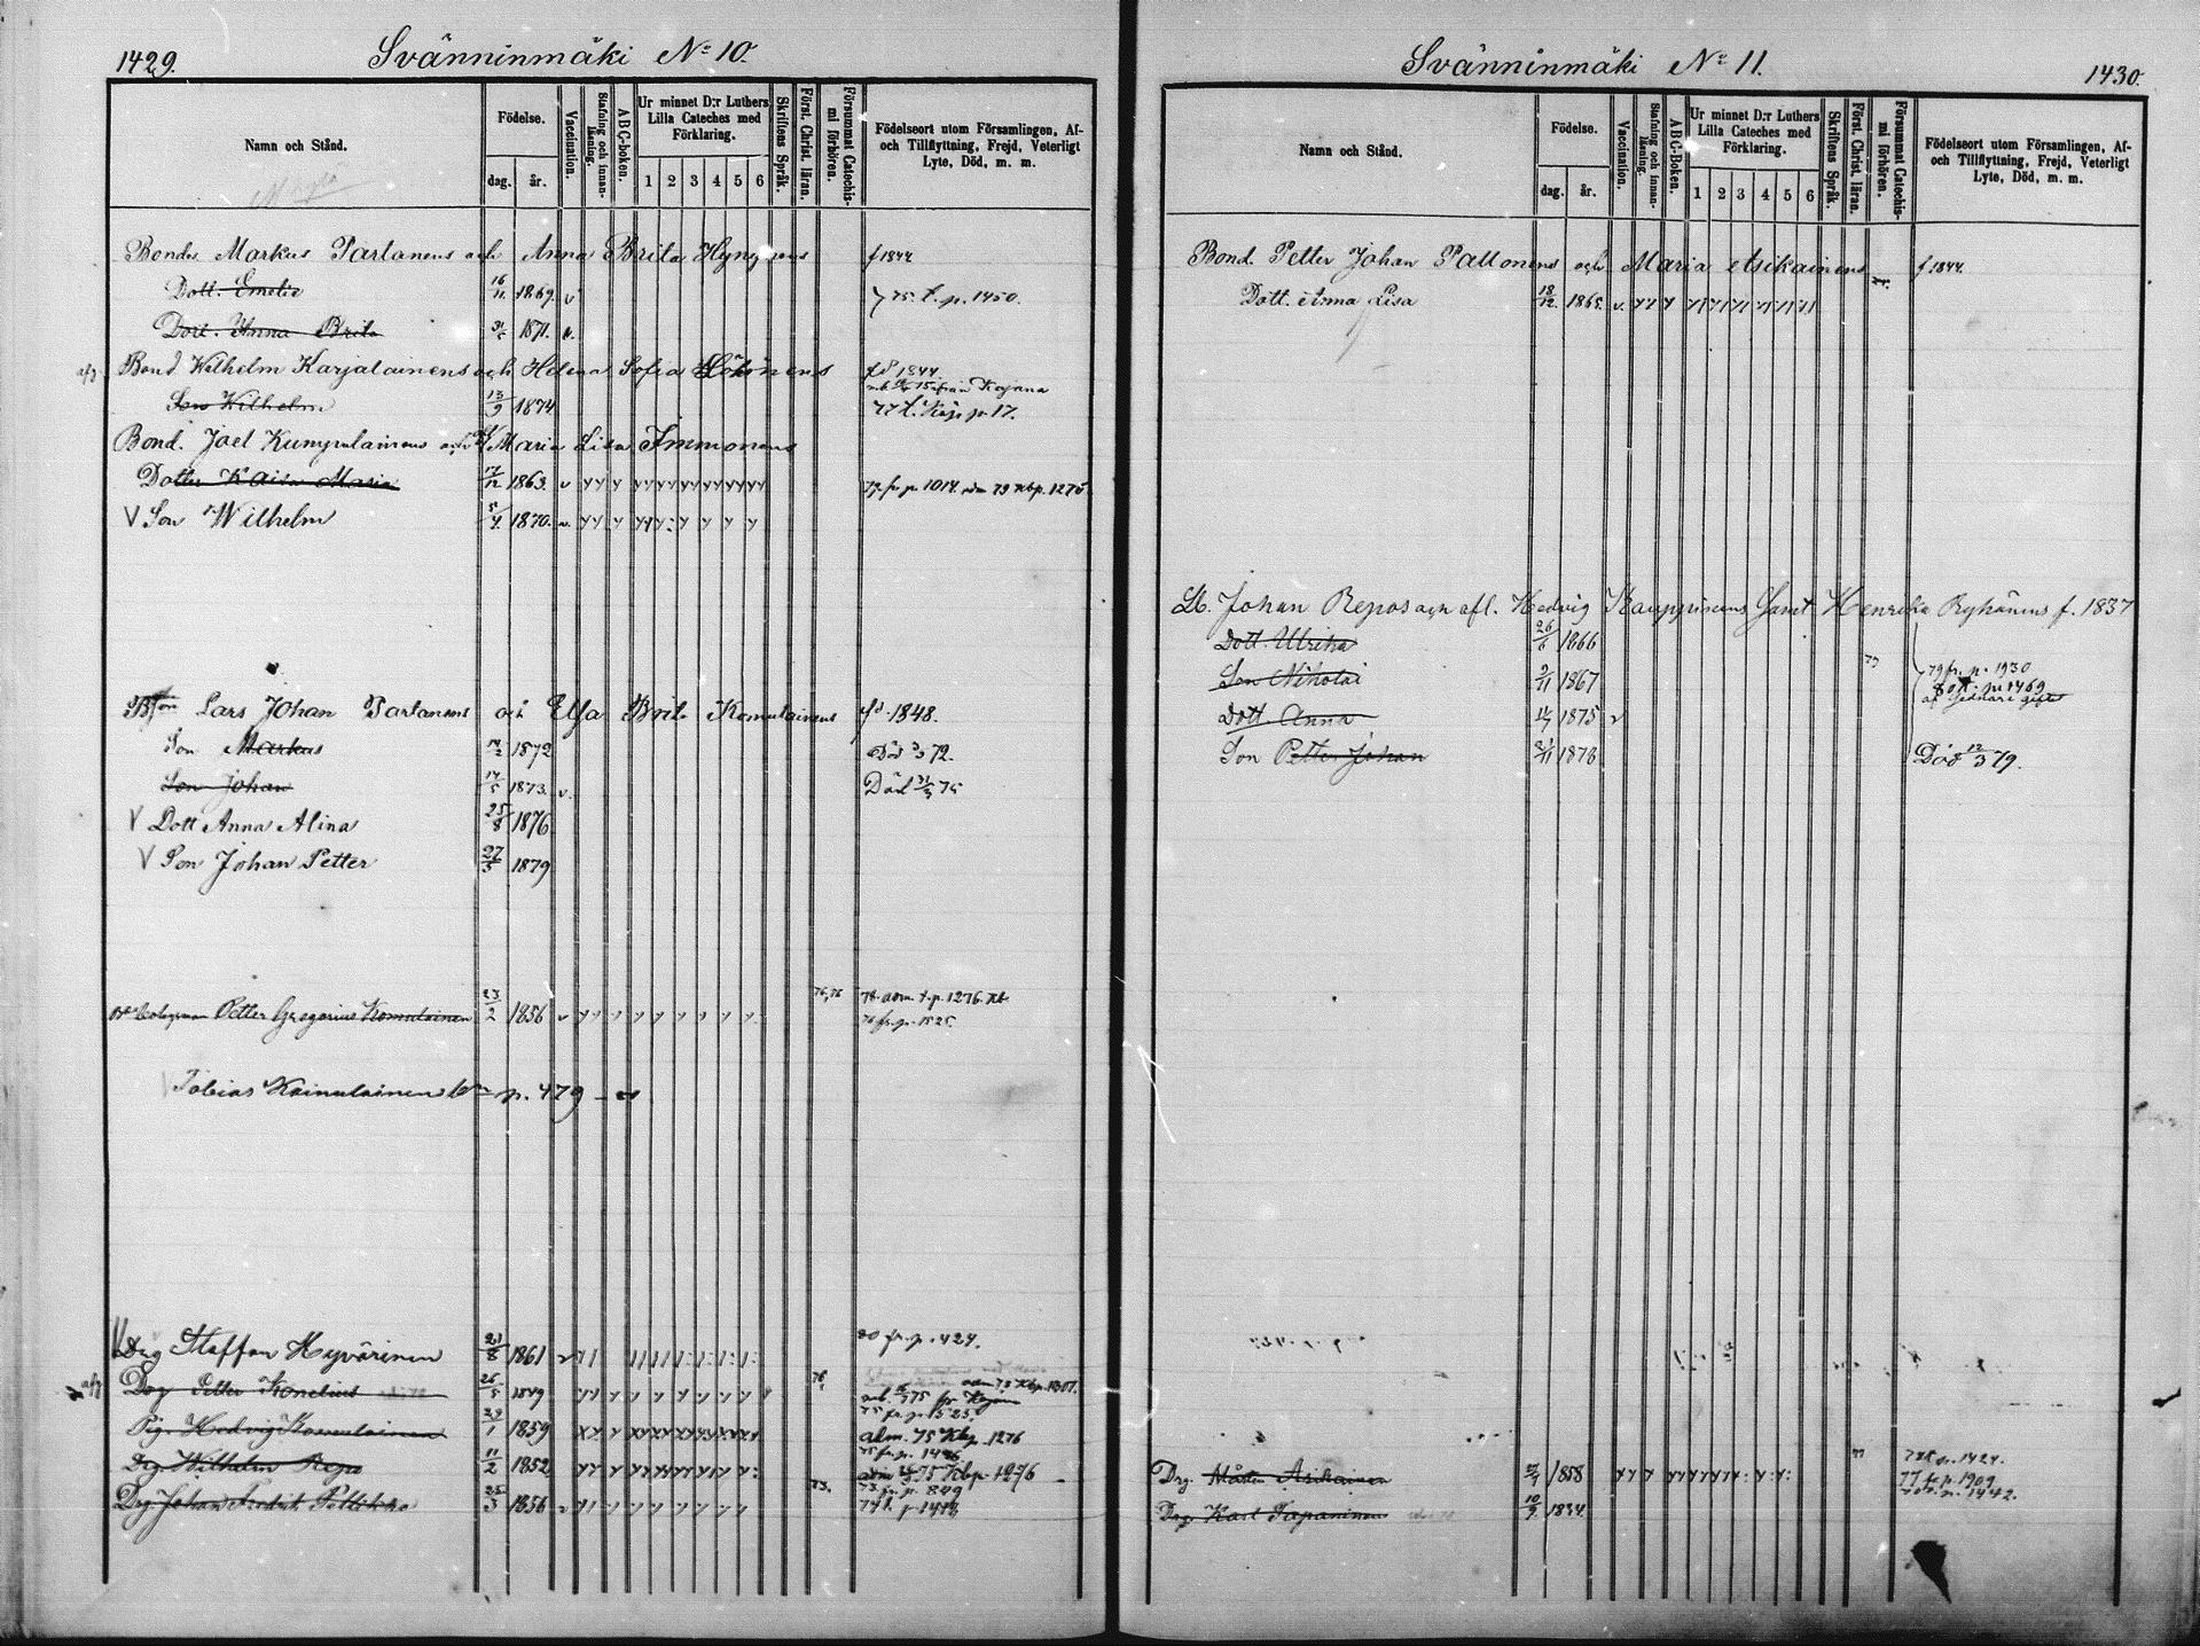 1429.
Svänninmäki No 10.
Namn och Stånd.
Födelse.
dag.
år.
Vaccination.
Stafning och innanläsning.
ABC-boken.
Ur minnet D:r Luthers Lilla Cateches med Förklaring.
1 2 3 4 5 6
Skriftens Språk.
Först. Christ. läran.
Försummat Catechismi förhören.
Födelseort utom Församlingen, Af- och Tillflyttning, Frejd, Veterligt Lyte, Död, m. m.
Bonden Markus Partanens och Anna Brita Hynynens f 1844
Dott. Emelie 16/11 1869. v } 75 t. p. 1450.
Dott. Anna Brita 1871. v.
afg Bond Wilhelm Karjalainens och Helena Sofia fd 1844
från Kajana
Son Wilhelm 13/9 1874 77 t. p. 17.
Bond. Joel och Maria Lisa Immonens
Dotter Kaisa Maria 17/12 1863. v 79. fr p. 1014. 79 Kbp. 1275
V Son Wilhelm 5/4 1870. v.
Lars Johan Partanens och Elsa Brit. Komulainens fd 1848.
Son Markus 14/2 1872 Död 72.
Son Johan 14/5 1873. v. Död 31/3 75
V Dott Anna Alina 25/8 1876
V Son Johan Petter 27/3 1879
Petter Gregorius Komulainen 23/2 1856 v 76,76 t. p. 1276. Kb.
76 fr. p. 1525.
Tobias Kainulainen p. 479
V Drg Staffan Hyvärinen 21/8 1861 v 80 fr. p. 424.
afg Drg Petter Konelius 26/5 1849 76, 75 Kbp. 1307.
75 fr. p. 1525.
Pig. Hedvig Komulainen 29/1 1859 adm. 75 Kbp. 1276
75 fr. p. 1426
Drg. Wilhelm Repo 11/2 1852 adm 75 Kbp. 1276
Drg Johan Fredrik 25/3 1856 v 73. 73 fr. p. 849
74 t. p 1414
Svänninmäki No 11.
1430.
Namn och Stånd.
Födelse.
dag.
år.
Vaccination.
Stafning och innanläsning.
ABC-Boken.
Ur minnet D:r Luthers Lilla Cateches med Förklaring.
1 2 3 4 5 6
Skriftens Språk.
Först. Christ. läran.
Försummat Catechismi förhören.
Födelseort utom Församlingen, Af- och Tillflyttning, Frejd, Veterligt Lyte, Död, m. m.
Bond. Petter Johan Pattonens och Maria Asikainens f 1844.
Dott. Anna Lisa 18/12. 1865. v.
Lb. Johan Repos och afl. Hedvig Kauppinens samt Henrika Ryhänens f. 1837
Dott. Ulrika 26/6 1866
Son Nikolai 2/11 1867 79 79 fr. p. 1930
p. 1469
Dott. Anna 1875 v
Son Petter Johan 1878 Död 12/3 79.
Drg. Mårten Asikainen 27/4 1858 77 78 t. p. 1424.
77 fr. p. 1909.
Drg. Karl Tapaninen 10/9. 1834. p. 1442.